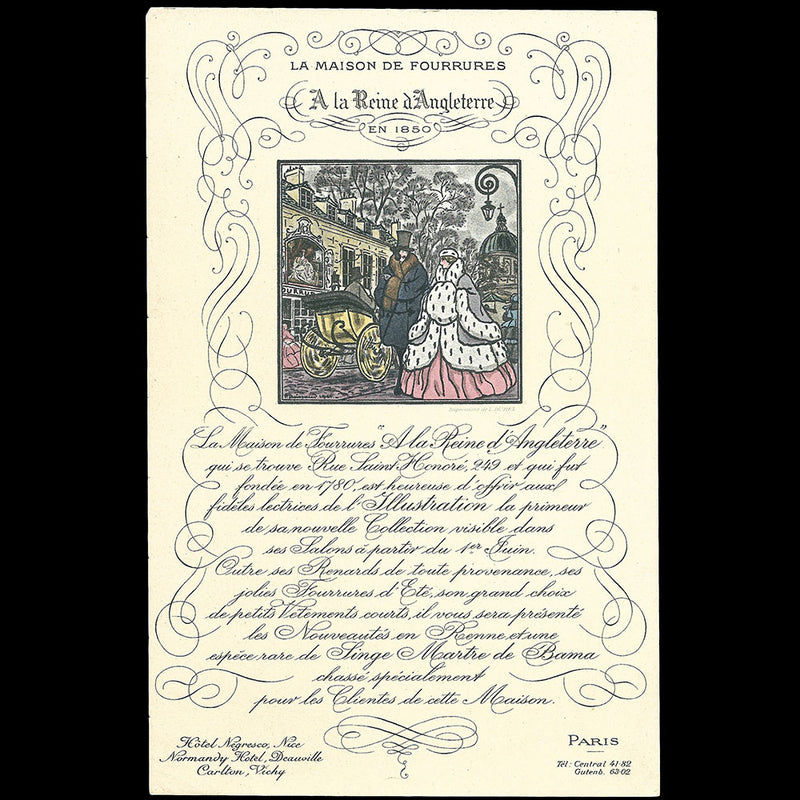 LA MAISON DE FOURRURES
A la Reine d'Angleterre
EN 1850
FOURRUR
Impressions de L. DUPRÉ
La Maison de Fourrures "A la Reine d'Angleterre"
qui se trouve Rue Saint-Honoré, 249 et qui fut
fondée en 1780, est heureuse d'offrir aux
fidèles lectrices de l'Illustration la primeur
de sa nouvelle Collection visible dans
ses Salons à partir du 1er Juin.
Outre ses Renards de toute provenance, ses
jolies Fourrures d'Eté, son grand choix
de petits Vêtements courts, il vous sera présenté
les Nouveautés en Renne et une
espèce rare de Singe Martre de Bama
chassé spécialement
pour les Clientes de cette Maison.
Hôtel Négresco, Nice
Normandy Hôtel, Deauville
Carlton, Vichy
PARIS
Tél: Central 41-82
Gutenb. 63-02